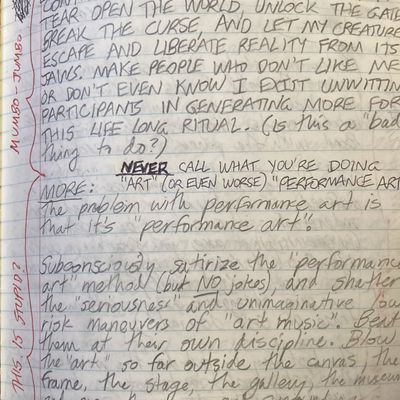 TEAR OPEN THE WORLD, UNLOCK THE GATE
BREAK THE CURSE, AND LET MY CREATURE
ESCAPE AND LIBERATE REALITY FROM ITS
JAWS. MAKE PEOPLE WHO DON'T LIKE ME
OR DON'T EVEN KNOW I EXIST UNWITTIN
PARTICIPANTS IN GENERATING MORE FOR
THIS LIFE LONG RITUAL. (Is this a "bad
thing to do?)
NEVER CALL WHAT YOU'RE DOING
"ART" (OR EVEN WORSE) "PERFORMANCE ART
MORE:
The problem with performance art is
that it's "performance art".
Subconsciously satirize the "performance
art" method (but NO jokes), and shatter
the "seriousness" and unimaginative low
risk maneuvers of "art music". Beat
them at their own discipline. Blow
the "art" so far outside the canvas, the
frame, the stage, the gallery, the museum
MUMBO-JUMBO
THIS IS STUPID?